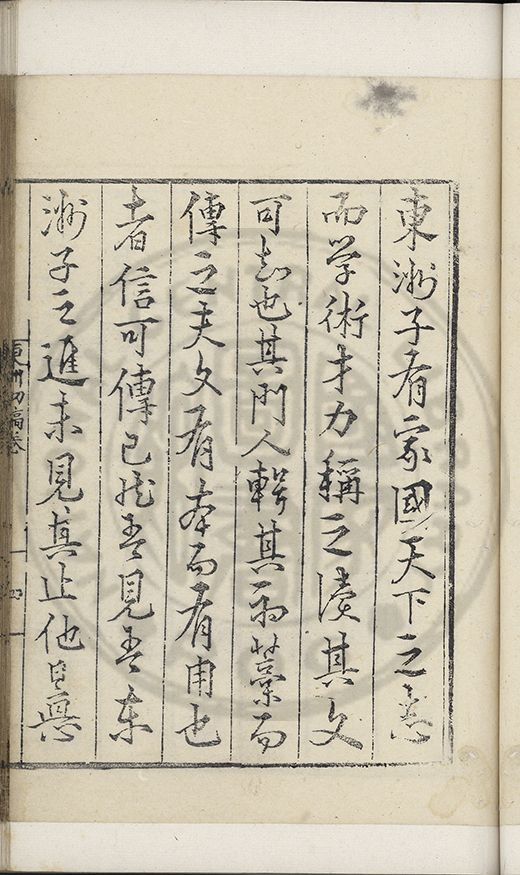 東洲子有家國天下之志
而学術才力稱之讀其文
可知也其門人輯其初藁而
傳之夫文有本而有用也
者信可傳已然吾見吾東
洲子之進未見其止他日與
東洲初稿卷
四